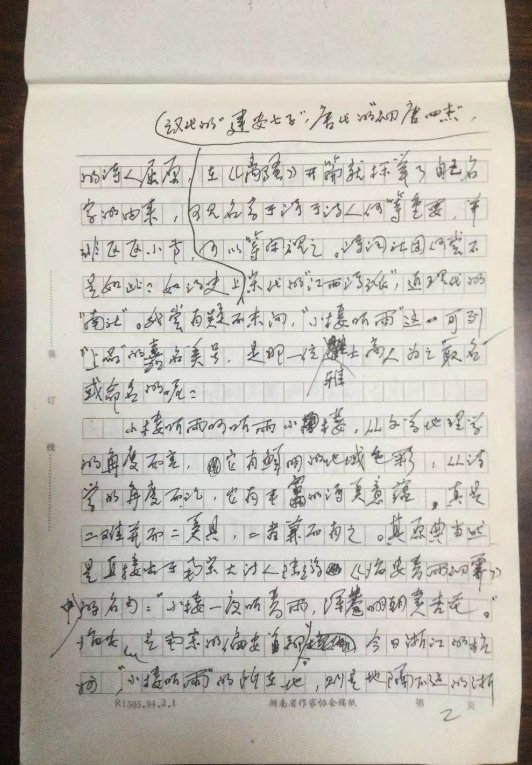 汉代的“建安七子”，唐代的“初唐四杰”，
的诗人屈原，在《离骚》开篇就探算了自己名
字的由来，可见名号于诗于诗人何等重要，半
非区区小节，可以等闲视之。诗词社团何尝不
是如此？如历史上宋代的“江西诗派”，近现代的
“南社”。我尝有疑而未问，“小楼听雨”这一可列
“上品”的嘉名美号，是哪一位雅士高人为之取名
或命名的呢？
小楼听雨呵听雨小楼，从文学地理学
的角度而言，它有鲜明的地域色彩，从诗
学的角度而论，它有丰富的诗美意蕴。真是
二难并而二美具，二者兼而有之。其原典当然
是直接出于南宋大诗人陆游《临安春雨初霁》
中的名句：“小楼一夜听春雨，深巷明朝卖杏花。”
临安，是南宋的偏安首都，今日浙江的杭
州，“小楼听雨”的所在地，则是地隔不远的浙
R1505.94.2.1
湖南省作家协会稿纸
第 2 页
装
订
线